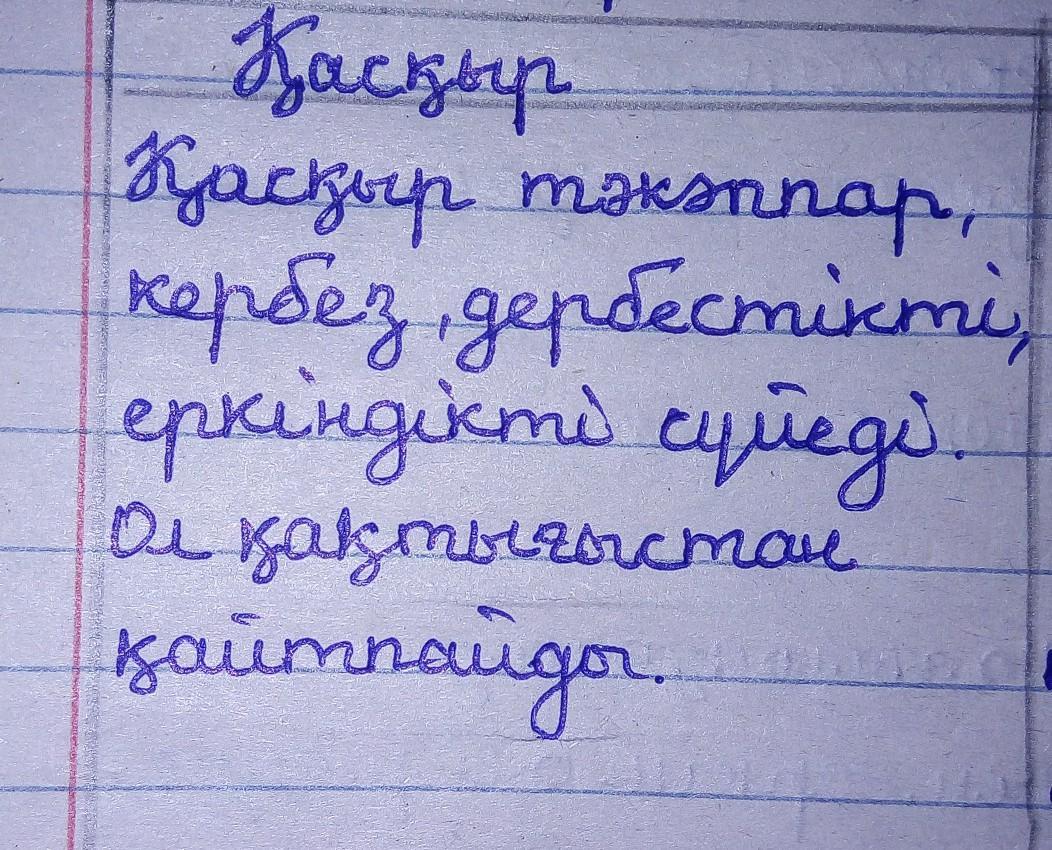 Қасқыр
Қасқыр тәкәппар,
кербез, дербестікті,
еркіндікті сүйеді.
Ол қақтығыстан
қайтпайды.